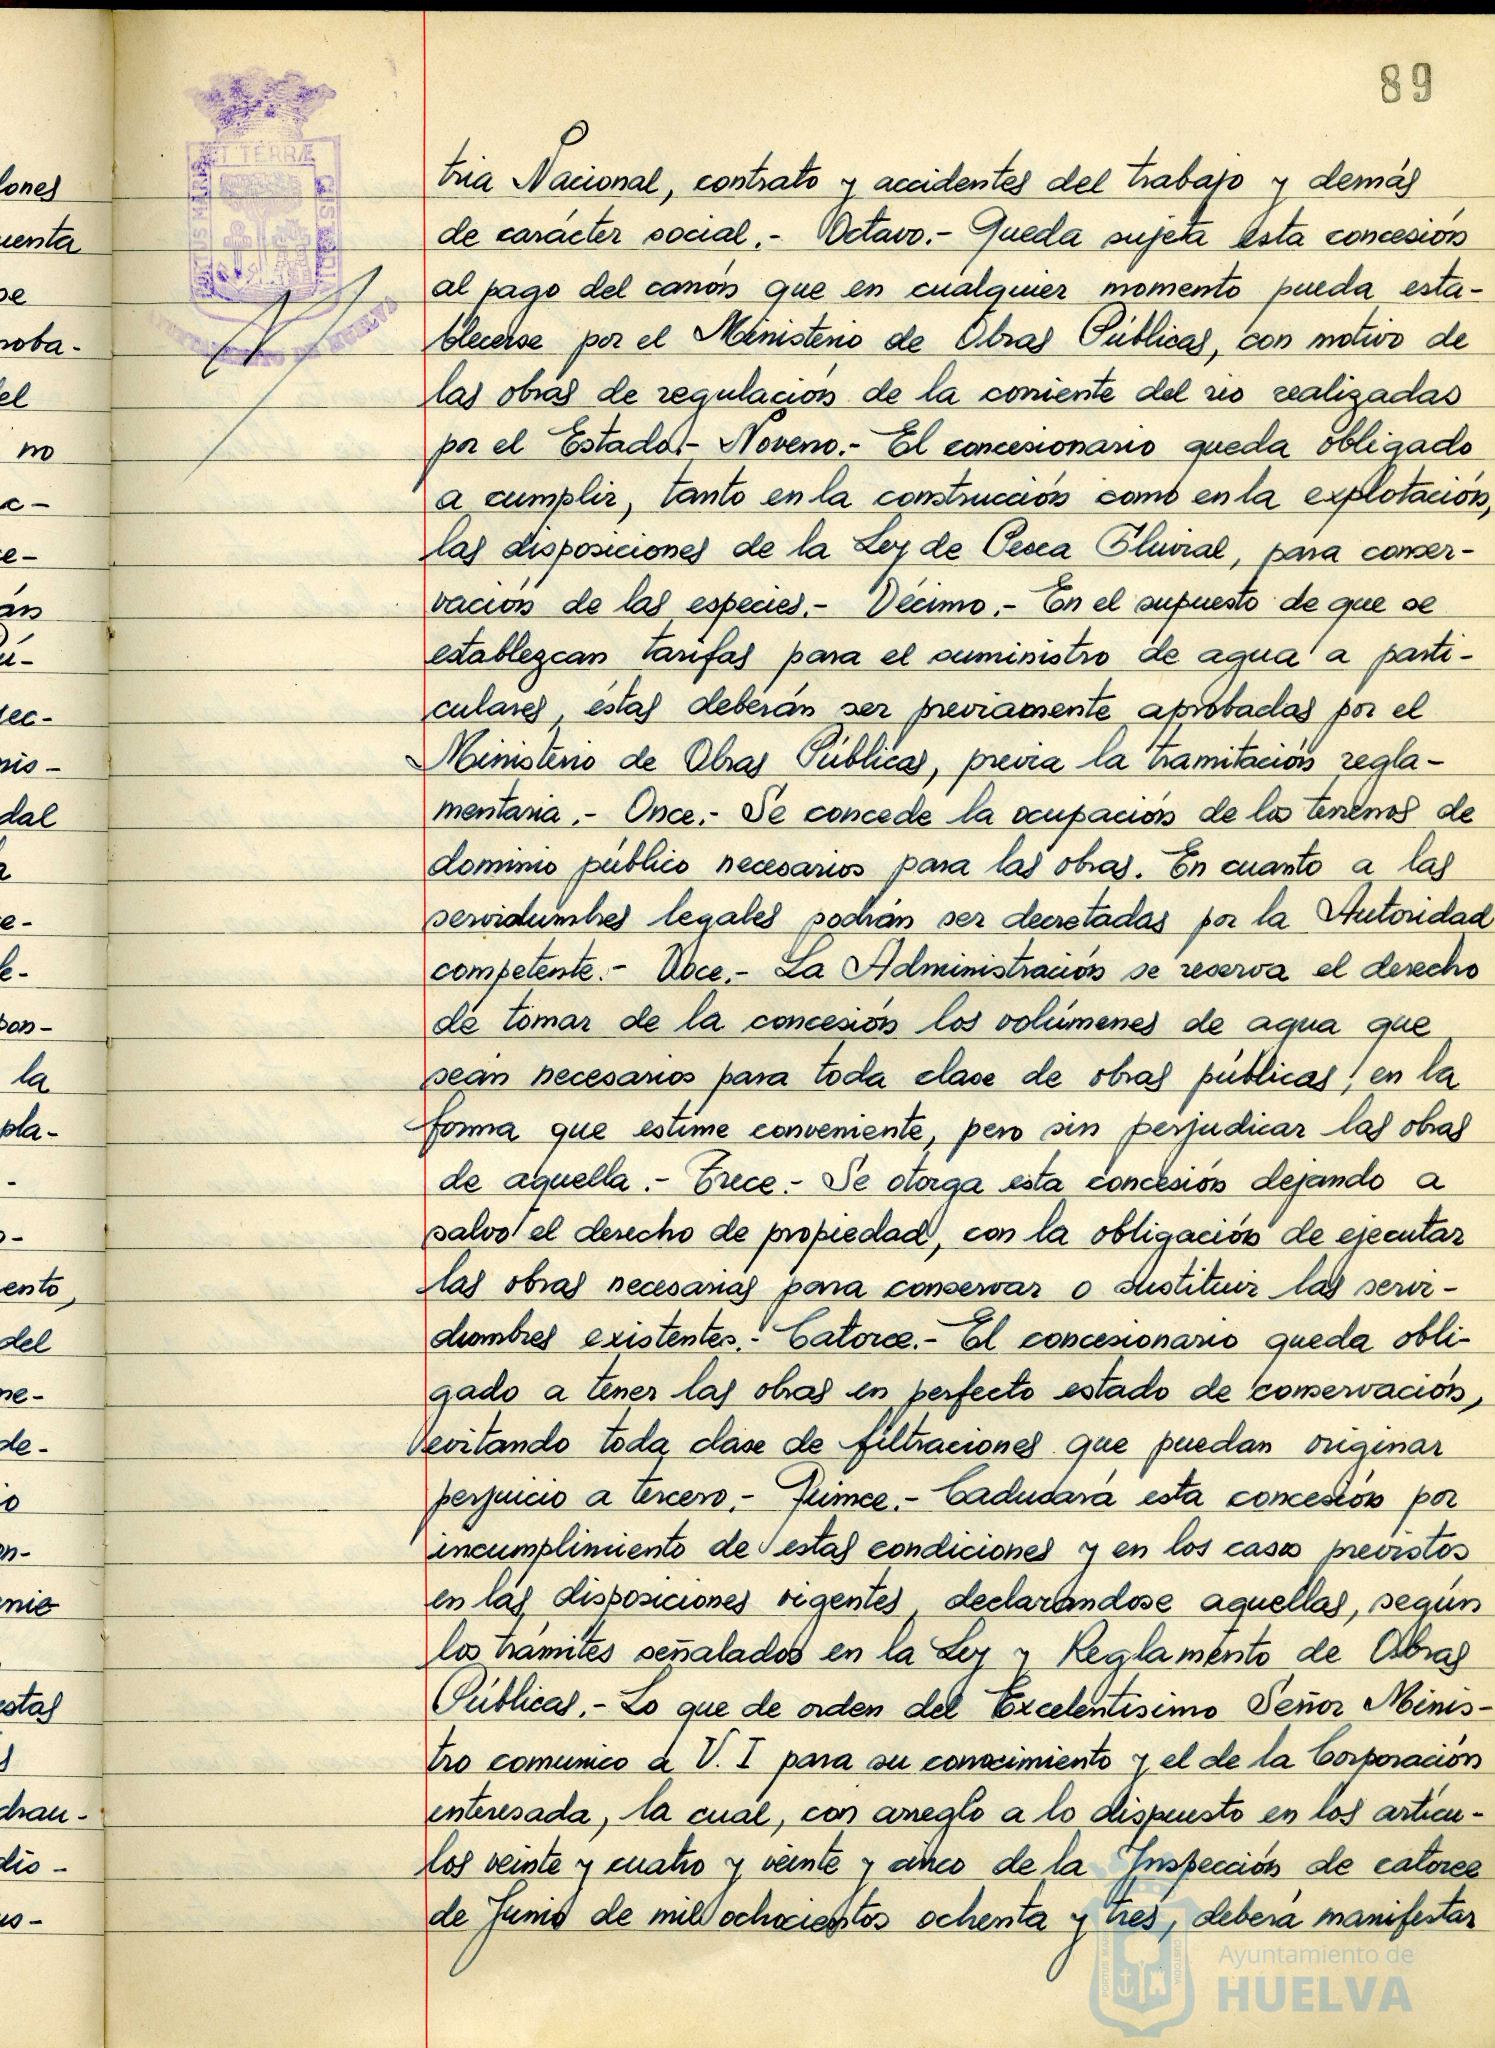 89
tria Nacional, contrato y accidentes del trabajo y demás
de carácter social.- Octavo.- Queda sujeta esta concesión
al pago del canón que en cualquier momento pueda esta-
blecerse por el Ministerio de Obras Públicas, con motivo de
las obras de regulación de la corriente del rio realizadas
por el Estado.- Noveno.- El concesionario queda obligado
a cumplir, tanto en la construcción como en la explotación,
las disposiciones de la Ley de Pesca Fluvial, para conser-
vación de las especies.- Décimo.- En el supuesto de que se
establezcan tarifas para el suministro de agua a parti-
culares, éstas deberán ser previamente aprobadas por el
Ministerio de Obras Públicas, previa la tramitación regla-
mentaria.- Once.- Se concede la ocupación de los terrenos de
dominio público necesarios para las obras. En cuanto a las
servidumbres legales podrán ser decretadas por la Autoridad
competente.- Doce.- La Administración se reserva el derecho
de tomar de la concesión los volúmenes de agua que
sean necesarios para toda clase de obras públicas, en la
forma que estime conveniente, pero sin perjudicar las obras
de aquella.- Trece.- Se otorga esta concesión dejando a
salvo el derecho de propiedad, con la obligación de ejecutar
las obras necesarias para conservar o sustituir las servi-
dumbres existentes.- Catorce.- El concesionario queda obli-
gado a tener las obras en perfecto estado de conservación,
evitando toda clase de filtraciones que puedan originar
perjuicio a tercero.- Quince.- Caducará esta concesión por
incumplimiento de estas condiciones y en los casos previstos
en las disposiciones vigentes, declarándose aquellas, según
los trámites señalados en la Ley y Reglamento de Obras
Públicas.- Lo que de orden del Excelentísimo Señor Minis-
tro comunico a V. I para su conocimiento y el de la Corporación
interesada, la cual, con arreglo a lo dispuesto en los artícu-
los veinte y cuatro y veinte y cinco de la Inspección de catorce
de Junio de mil ochocientos ochenta y tres, deberá manifestar
PORTUS MARIS ET TERRÆ CUSTODIA
AYUNTAMIENTO DE HUELVA
lones
uenta
se
roba-
el
no
c-
e-
án
ú-
sec-
nis-
dal
e-
le-
pon-
la
pla-
-
o-
ento,
del
ne-
de-
io
on-
enie
estas
drau-
dis-
us-
Ayuntamiento de
HUELVA